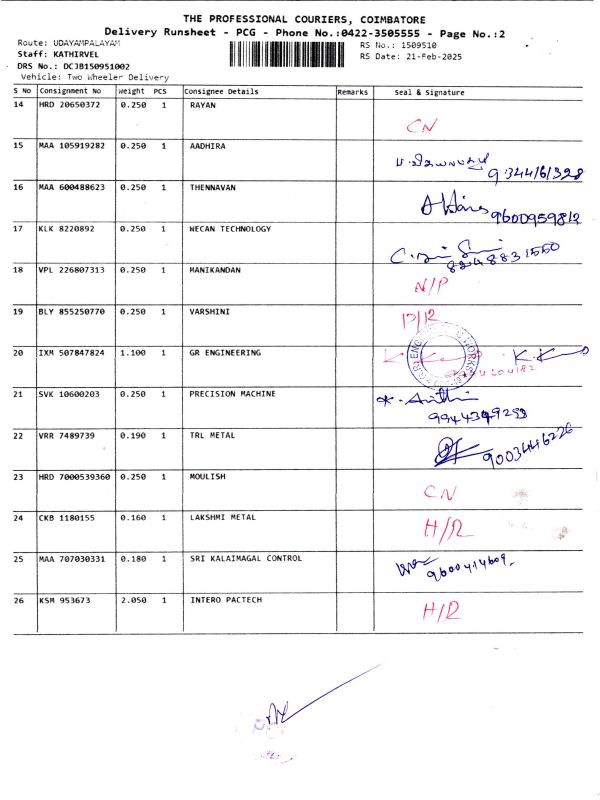 THE PROFESSIONAL COURIERS, COIMBATORE
Delivery Runsheet - PCG - Phone No.:0422-3505555 - Page No.:2
Route: UDAYAMPALAYAM
Staff: KATHIRVEL
DRS No.: DCJB150951002
Vehicle: Two Wheeler Delivery
RS No.: 1509510
RS Date: 21-Feb-2025
S No Consignment No Weight PCS Consignee Details Remarks Seal & Signature
14 HRD 20650372 0.250 1 RAYAN CN
15 MAA 105919282 0.250 1 AADHIRA
16 MAA 600488623 0.250 1 THENNAVAN 9600959812
17 KLK 8220892 0.250 1 WECAN TECHNOLOGY
18 VPL 226807313 0.250 1 MANIKANDAN N/P
19 BLY 855250770 0.250 1 VARSHINI
20 IXM 507847824 1.100 1 GR ENGINEERING
21 SVK 10600203 0.250 1 PRECISION MACHINE
22 VRR 7489739 0.190 1 TRL METAL
23 HRD 7000539360 0.250 1 MOULISH CN
24 CKB 1180155 0.160 1 LAKSHMI METAL H/R
25 MAA 707030331 0.180 1 SRI KALAIMAGAL CONTROL 9600414609
26 KSM 953673 2.050 1 INTERO PACTECH H/R